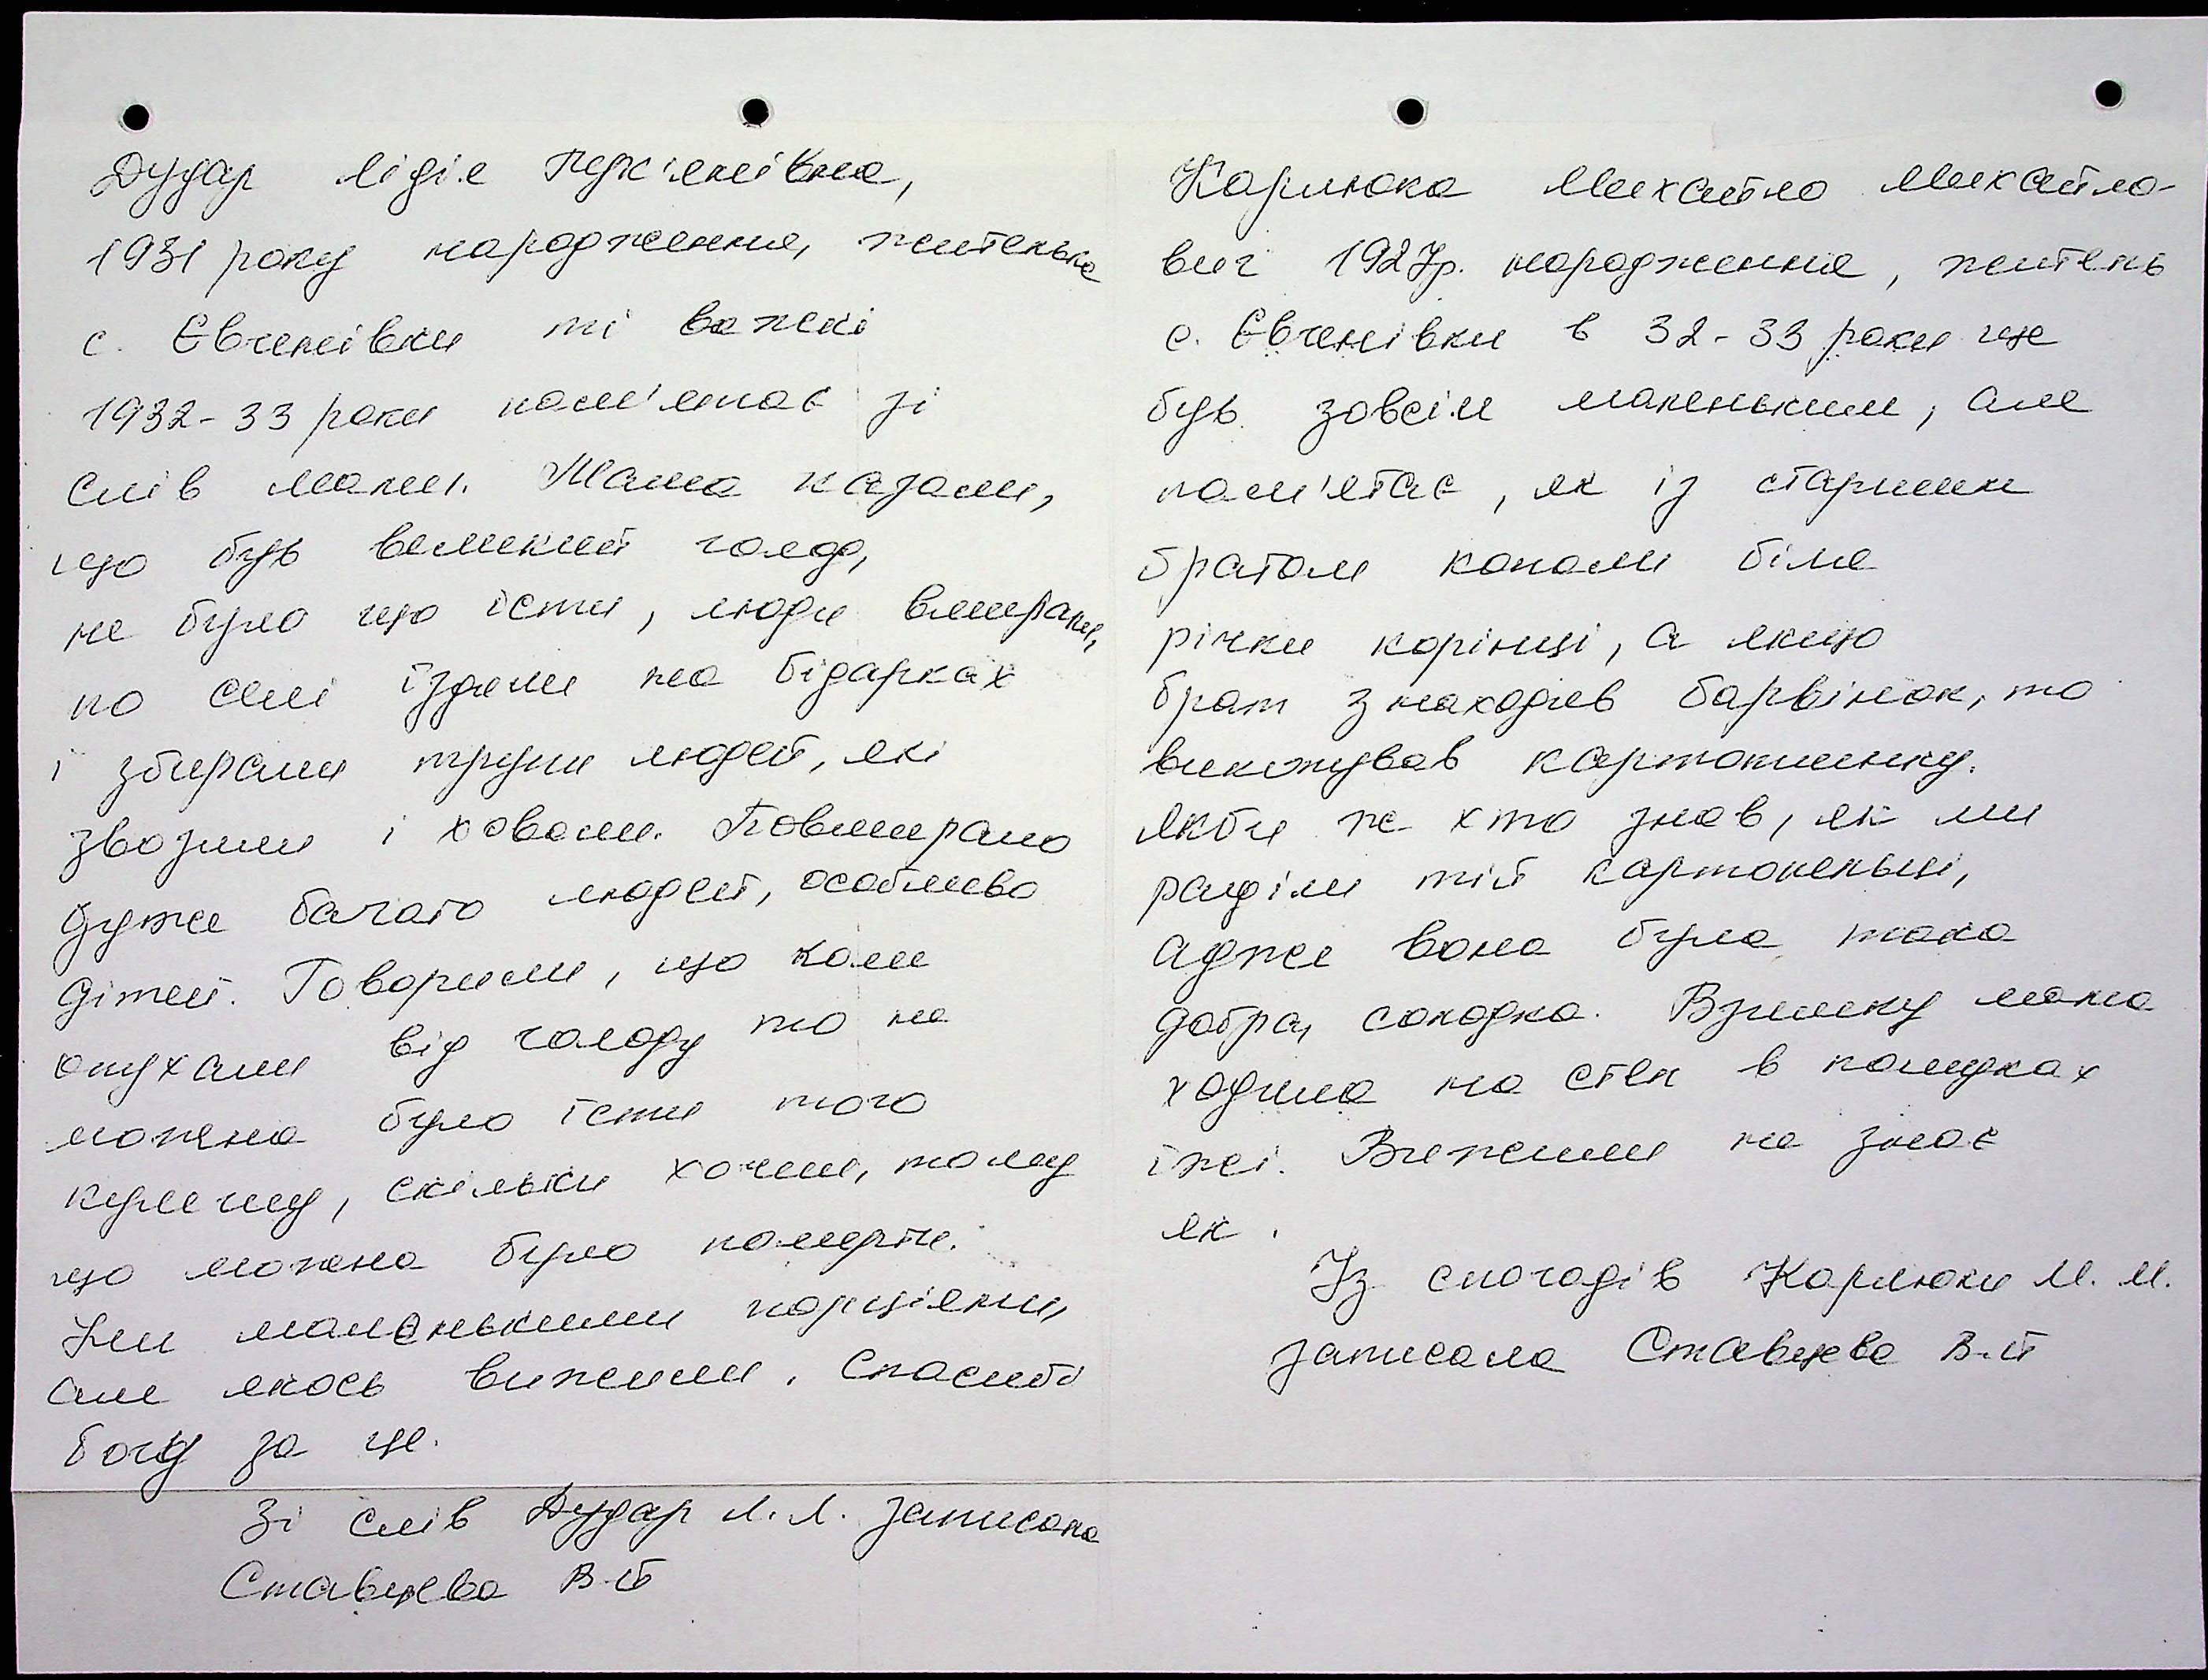 Дудар Лідія
1931 року народження, жителька
с. Євгенівки ті важкі
1932-33 роки пам'ятає зі
слів мами. Мама казали,
що був великий голод,
не було що їсти, люди вмирали,
по селі їздили на бідарках
і збирали трупи людей, які
звозили і ховали. Повмирало
дуже багато людей, особливо
дітей. Говорили, що коли
опухали від голоду то не
можна було їсти того
кулешу, скільки хочеш, тому
що можна було померти.
Їли маленькими порціями,
але якось вижили. Спасибі
богу за це.
Зі слів Дудар Л. Л. записала
Ставцева В.Й
Карлюка Михайло Михайло-
вич 1927р. народження, житель
с. Євгенівки в 32-33 роки ще
був зовсім маленьким, але
пам'ятає, як із старшим
братом копали біля
річки корінці, а якщо
брат знаходив барвінок, то
викопував картоплинку.
Якби же хто знав, як ми
раділи тій картопельці,
адже вона була така
добра, солодка. Взимку мама
ходила на степ в пошуках
їжі. Вижили не знає
як.
Із спогадів Карлюки М. М.
записала Ставцева В.Й